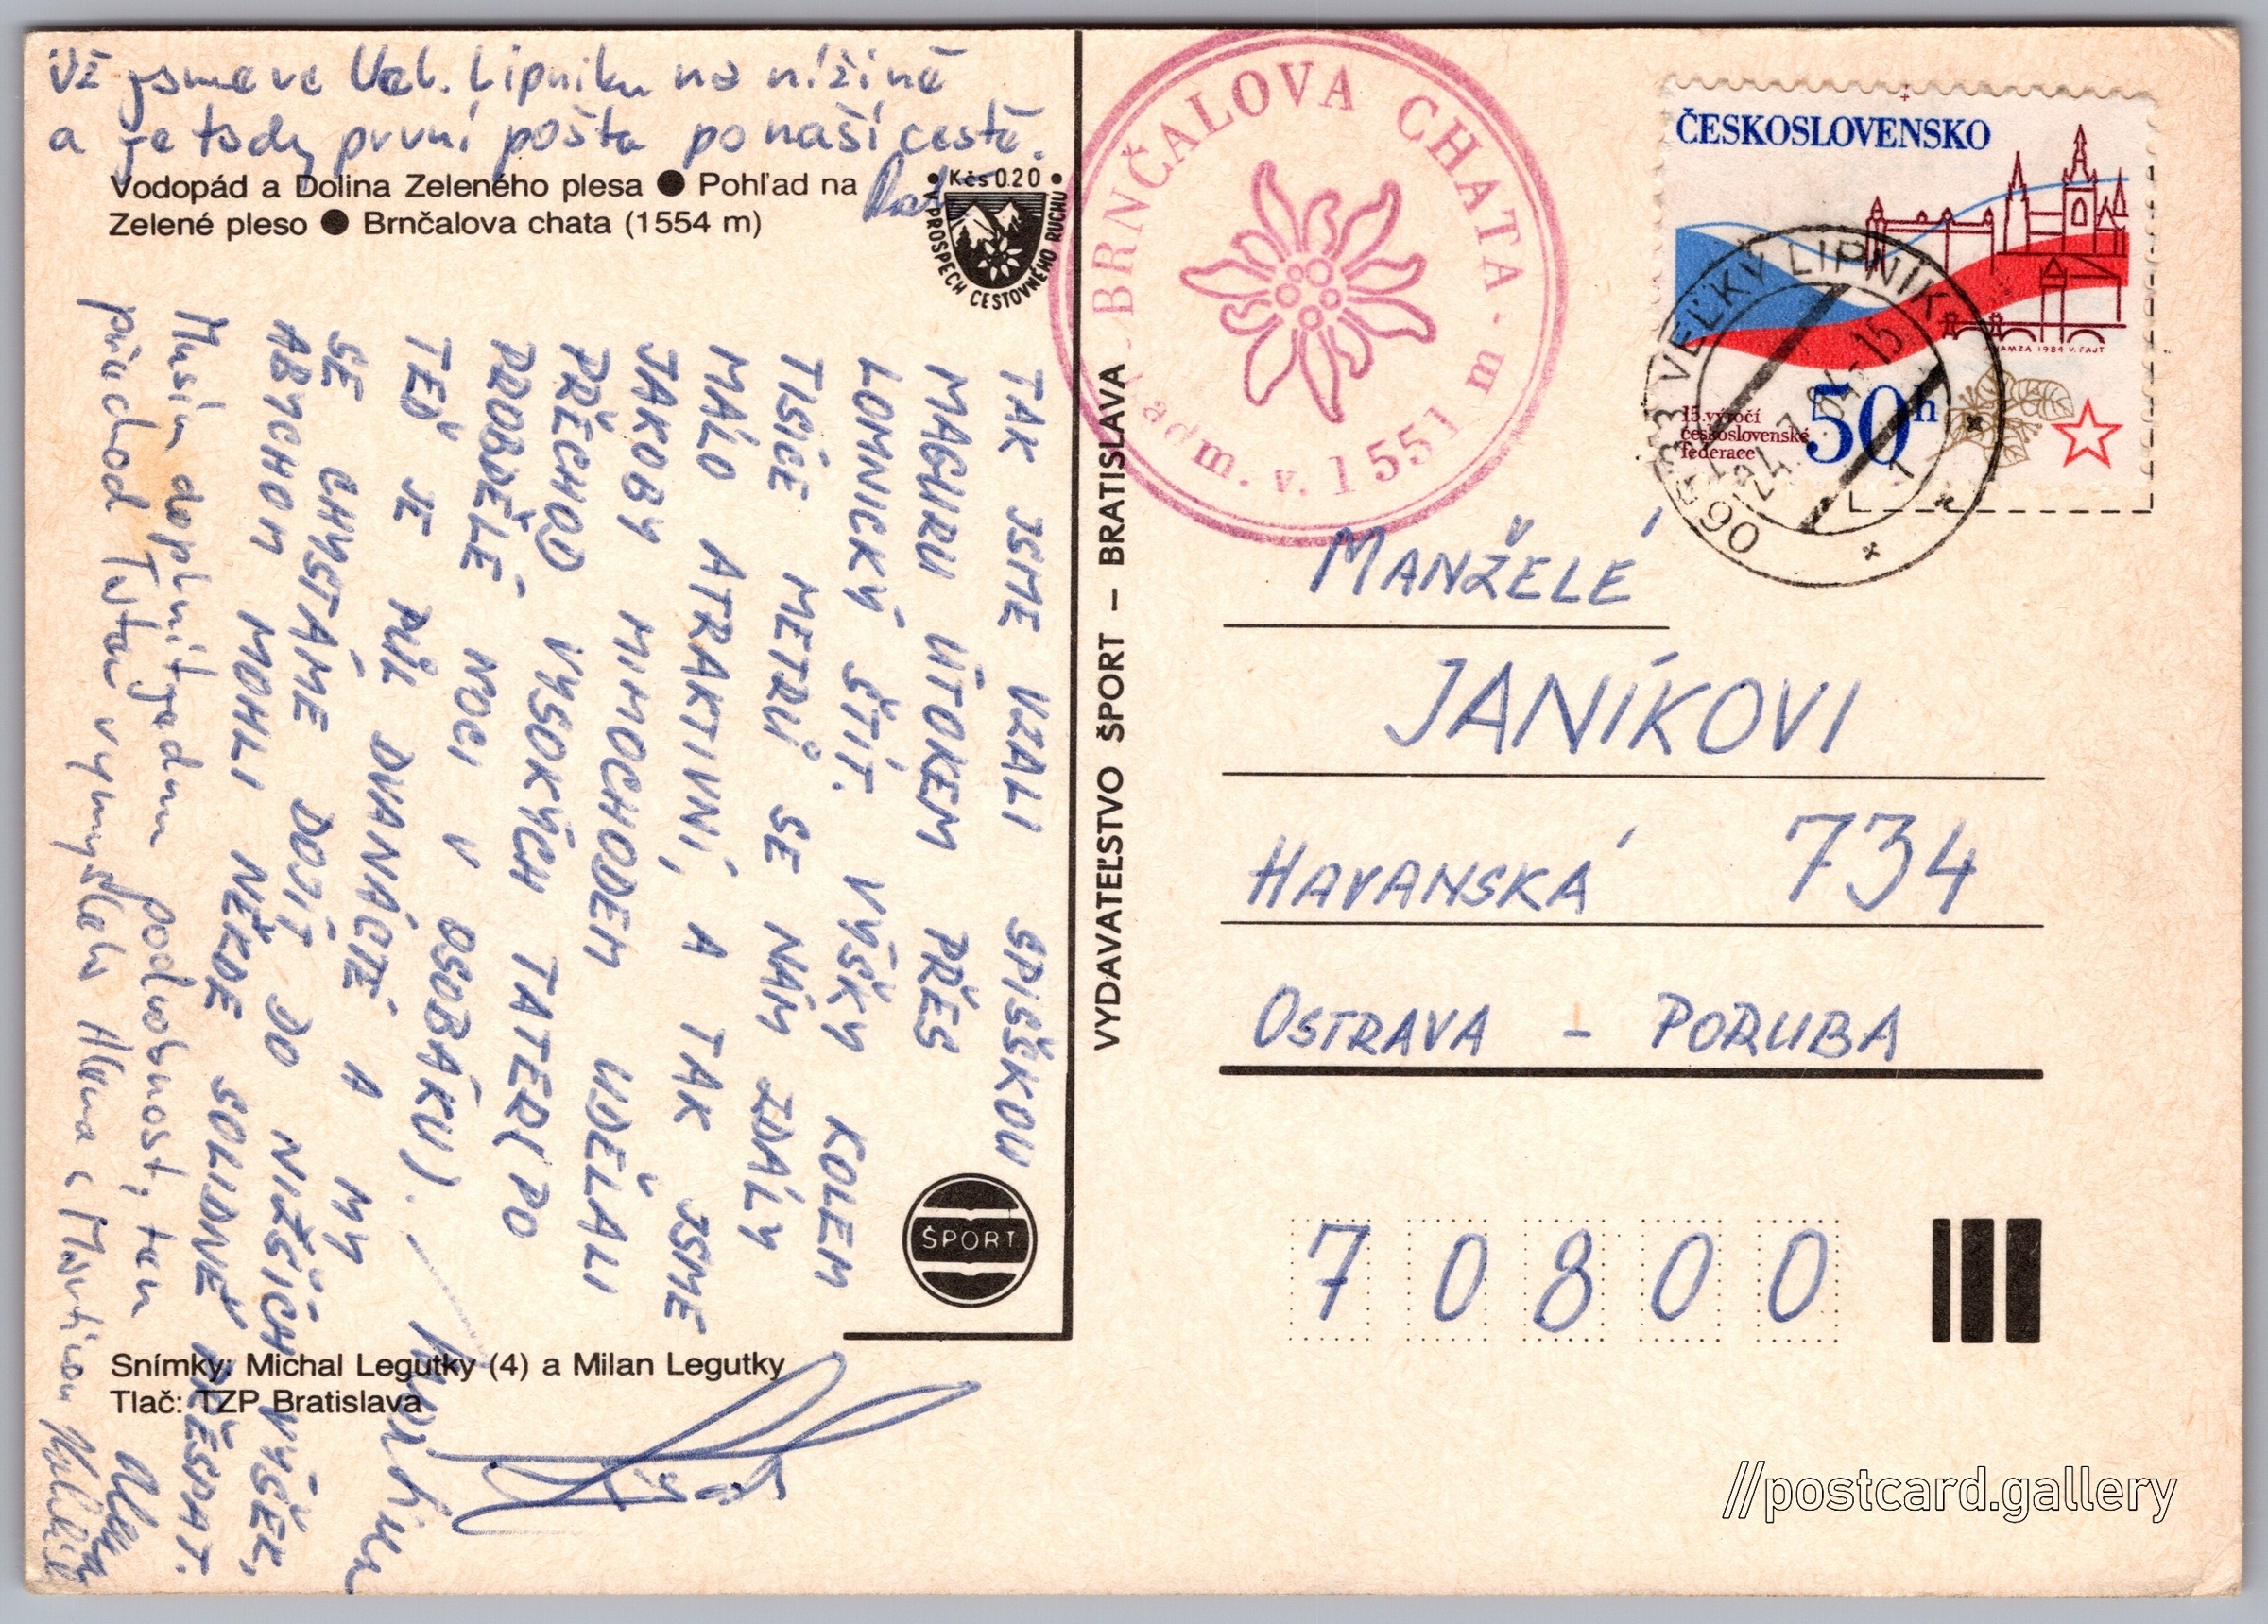 Už jsme ve Vel. Lipníku na nížině
a je tady první pošta po naší cestě.
Vodopád a Dolina Zeleného plesa ● Pohľad na
Zelené pleso ● Brnčalova chata (1554 m)
• Kčs 0.20 •
V PROSPECH CESTOVNÉHO RUCHU
TAK JSME VZALI SPIŠSKOU
MAGURU ÚTOKEM PŘES
LOMNICKÝ ŠTÍT. VÝŠKY KOLEM
TISÍCE METRŮ SE NÁM ZDÁLY
MÁLO ATRAKTIVNÍ, A TAK JSME
JAKOBY MIMOCHODEM UDĚLALI
PŘECHOD VYSOKÝCH TATER (PO
PROBDĚLÉ NOCI V OSOBÁKU).
TEĎ JE PŮL DVANÁCTÉ A MY
SE CHYSTÁME DOJÍT DO NIŽŠÍCH VÝŠEK,
ABYCHOM MOHLI NĚKDE SOLIDNĚ PŘESPAT.
Musím doplnit jednu podrobnost, ten
přechod Tater vymyslela Alena s
VYDAVATEĽSTVO ŠPORT – BRATISLAVA
ŠPORT
Snímky: Michal Legutky (4) a Milan Legutky
Tlač: TZP Bratislava
BRNČALOVA CHATA
nadm. v. 1551 m
ČESKOSLOVENSKO
J. HAMZA 1984 V. FAJT
15. výročí
československé
federace
50h
VEĽKÝ LIPNÍK
MANŽELÉ
JANÍKOVI
HAVANSKÁ 734
OSTRAVA - PORUBA
70800
//postcard.gallery